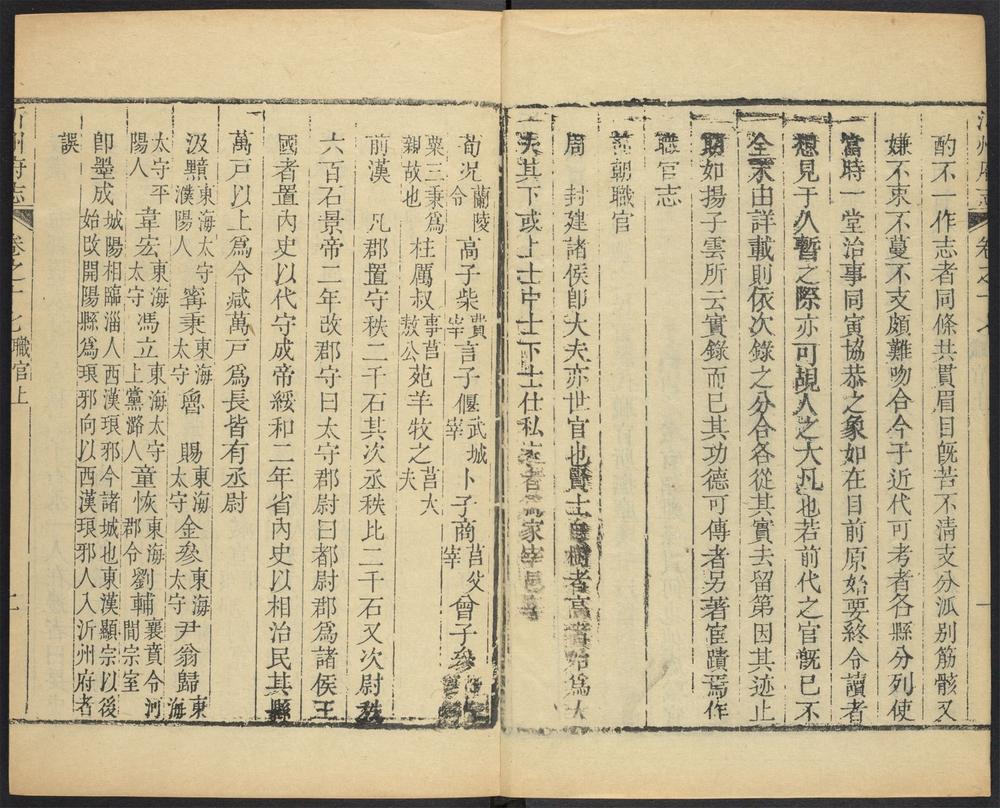 酌不一作志者同條共貫眉目旣苦不淸支分泒别筋骸又
嫌不束不蔓不支頗難吻合今于近代可考者各縣分列使
當時一堂治事同寅協恭之象如在目前原始要終令讀者
想見于久暫之際亦可覘人之大凡也若前代之官旣已不
全不由詳載則依次錄之分合各從其實去留第因其迹止
期如揚子雲所云實錄而已其功德可傳者另著宦蹟焉作
職官志
前朝職官
周 封建諸侯卽大夫亦世官也賢士自樹者高貲始爲大
夫其下或上士中士下士仕私者爲家宰邑
荀况蘭陵令 高子柴費宰 言子偃武城宰 卜子商莒父宰 曾子參
粟三秉爲親故也 柱厲叔事莒敖公 苑羊牧之莒大夫
前漢 凡郡置守秩二千石其次丞秩比二千石又次尉秩
六百石景帝二年改郡守曰太守郡尉曰都尉郡爲諸侯王
國者置內史以代守成帝綏和二年省內史以相治民其縣
萬戶以上爲令減萬戶爲長皆有丞尉
汲黯東海太守濮陽人 甯秉東海太守 魯賜東海太守 金參東海太守 尹翁歸東海
太守平陽人 韋宏東海太守 馮立東海太守上黨潞人 童恢東海郡令 劉輔襄賁令河間宗室
卽墨成城陽相臨淄人西漢琅邪今諸城也東漢顯宗以後始改開陽縣爲琅邪向以西漢琅邪人入沂州府者
誤
沂州府志
卷之十七職官上
二
沂州府志
卷之十七
一